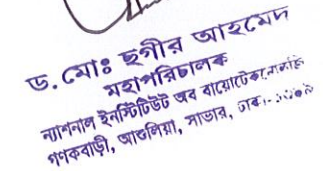 ড. মোঃ ছগীর আহমেদ
মহাপরিচালক
ন্যাশনাল ইনস্টিটিউট অব বায়োটেকনোলজি
গণকবাড়ী, আশুলিয়া, সাভার, ঢাকা